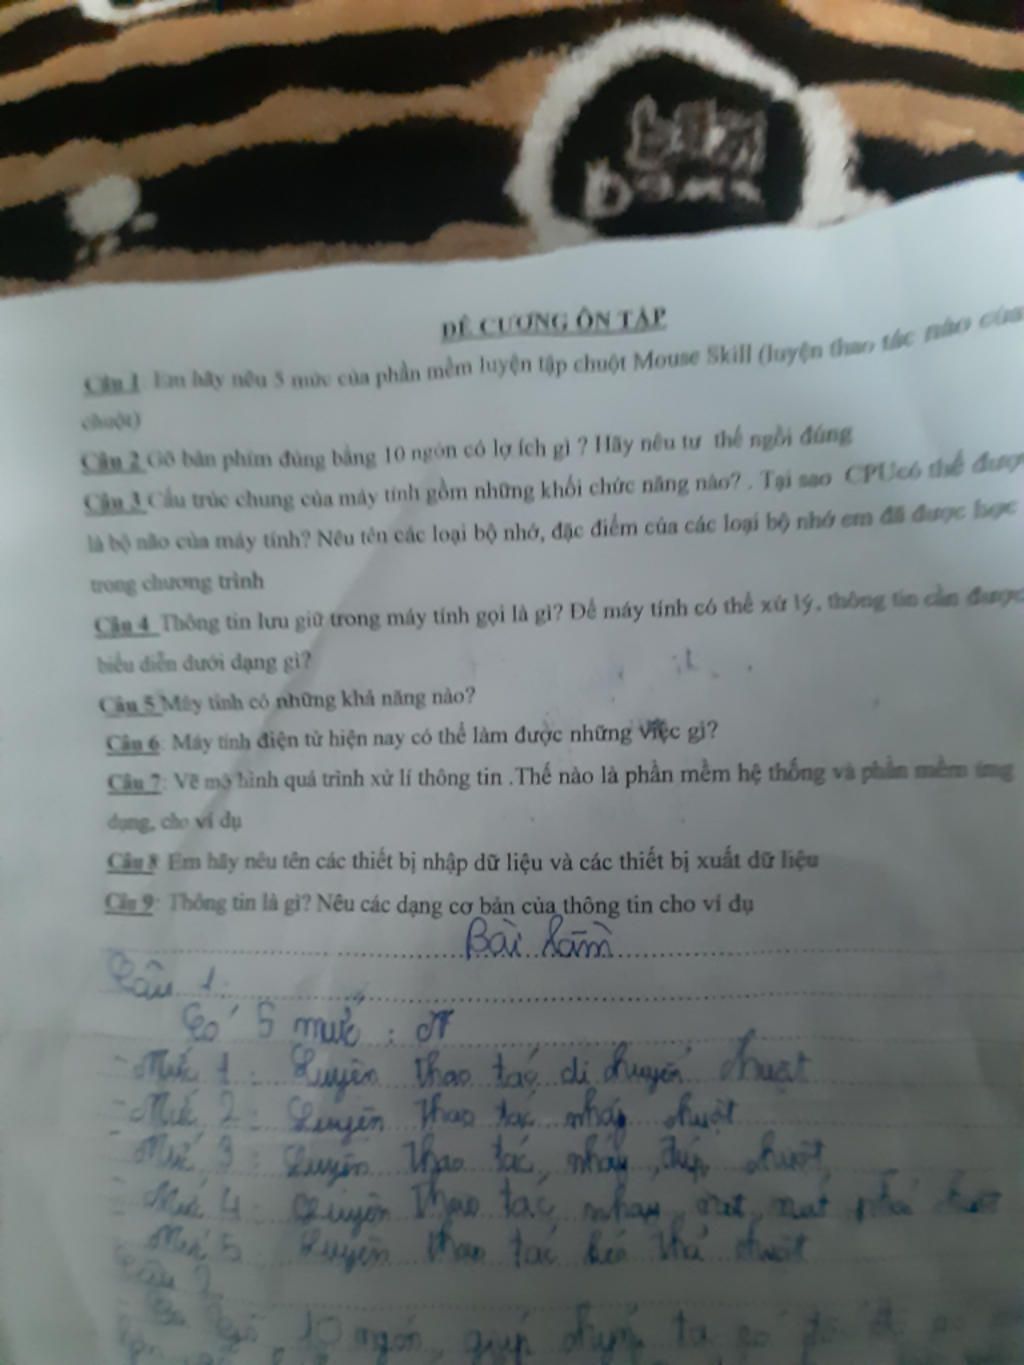 ĐỀ CƯƠNG ÔN TẬP
Câu 1: Em hãy nêu 5 mức của phần mềm luyện tập chuột Mouse Skill (luyện thao tác nào của
chuột)
Câu 2 Gõ bàn phím đúng bằng 10 ngón có lợ ích gì ? Hãy nêu tư thế ngồi đúng
Câu 3 Cấu trúc chung của máy tính gồm những khối chức năng nào? . Tại sao CPUcó thể được
là bộ não của máy tính? Nêu tên các loại bộ nhớ, đặc điểm của các loại bộ nhớ em đã được học
trong chương trình
Câu 4 Thông tin lưu giữ trong máy tính gọi là gì? Để máy tính có thể xử lý, thông tin cần được
biểu diễn dưới dạng gì?
Câu 5 Máy tính có những khả năng nào?
Câu 6: Máy tính điện tử hiện nay có thể làm được những việc gì?
Câu 7: Vẽ mô hình quá trình xử lí thông tin .Thế nào là phần mềm hệ thống và phần mềm ứng
dụng, cho ví dụ
Câu 8 Em hãy nêu tên các thiết bị nhập dữ liệu và các thiết bị xuất dữ liệu
Câu 9: Thông tin là gì? Nêu các dạng cơ bản của thông tin cho ví dụ
Bài làm
Câu 1:
Có 5 mức :
- Mức 1 : Luyện thao tác di chuyển chuột
- Mức 2 : Luyện thao tác nháy chuột
- Mức 3 : Luyện thao tác nháy đúp chuột
- Mức 4 : Luyện thao tác nháy nút phải chuột
- Mức 5 : Luyện thao tác kéo thả chuột
Câu 2
10 ngón giúp chúng ta có